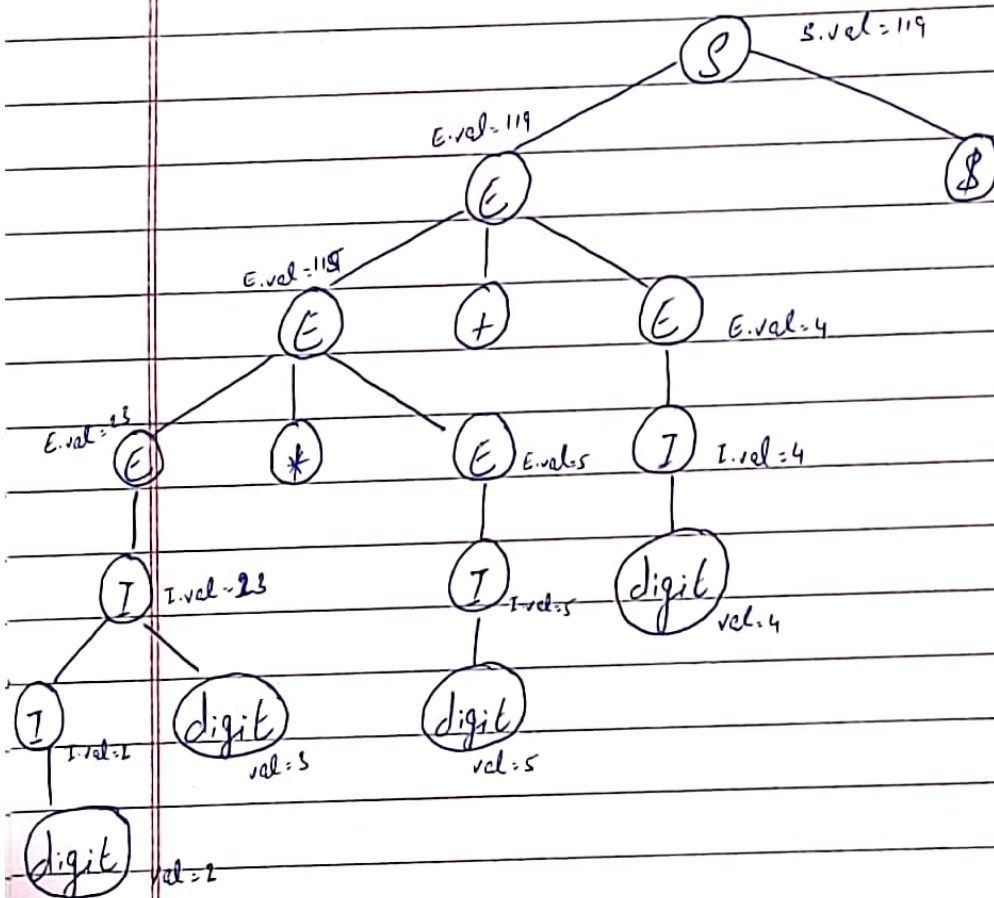 S.val=119
S
E.val=119
E
$
E.val=115
E
+
E
E.val=4
E.val=23
E
*
E
E.val=5
I
I.val=4
I
I.val=23
I
I.val=5
digit
val=4
I
I.val=2
digit
val=3
digit
val=5
digit
val=2